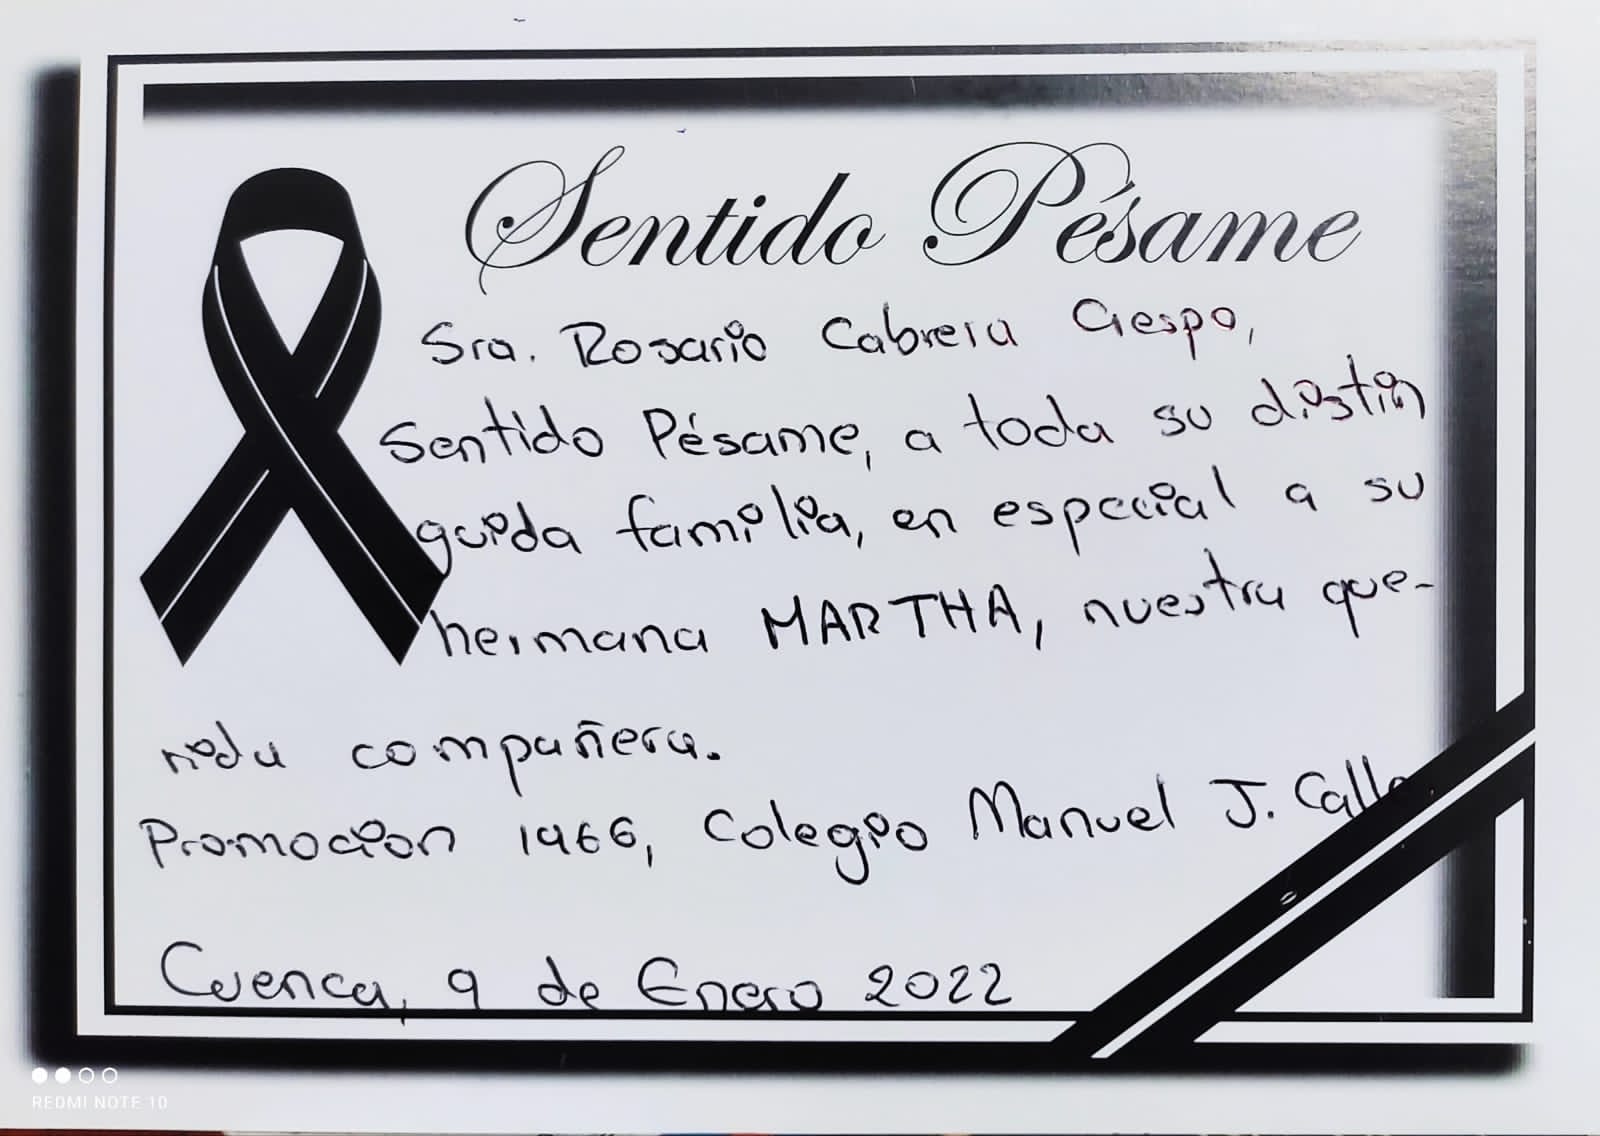 Sentido Pésame
Sra. Rosario Cabrera Crespo,
Sentido Pésame, a toda su distin
guida familia, en especial a su
hermana MARTHA, nuestra que-
rida compañera.
Promocion 1966, Colegio Manuel J. Calle
Cuenca, 9 de Enero 2022
REDMI NOTE 10